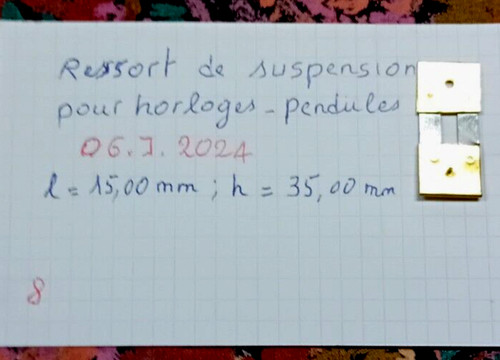 Ressort de suspension
pour horloges - pendules
06.I.2024
l = 15,00 mm ; h = 35,00 mm
8